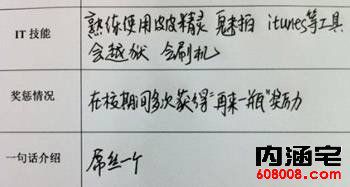 IT 技能
熟练使用皮皮精灵 魅拍 itunes等工具
会越狱 会刷机
奖惩情况
在校期间多次获得"再来一瓶"奖励
一句话介绍
屌丝一个
内涵宅
608008.com